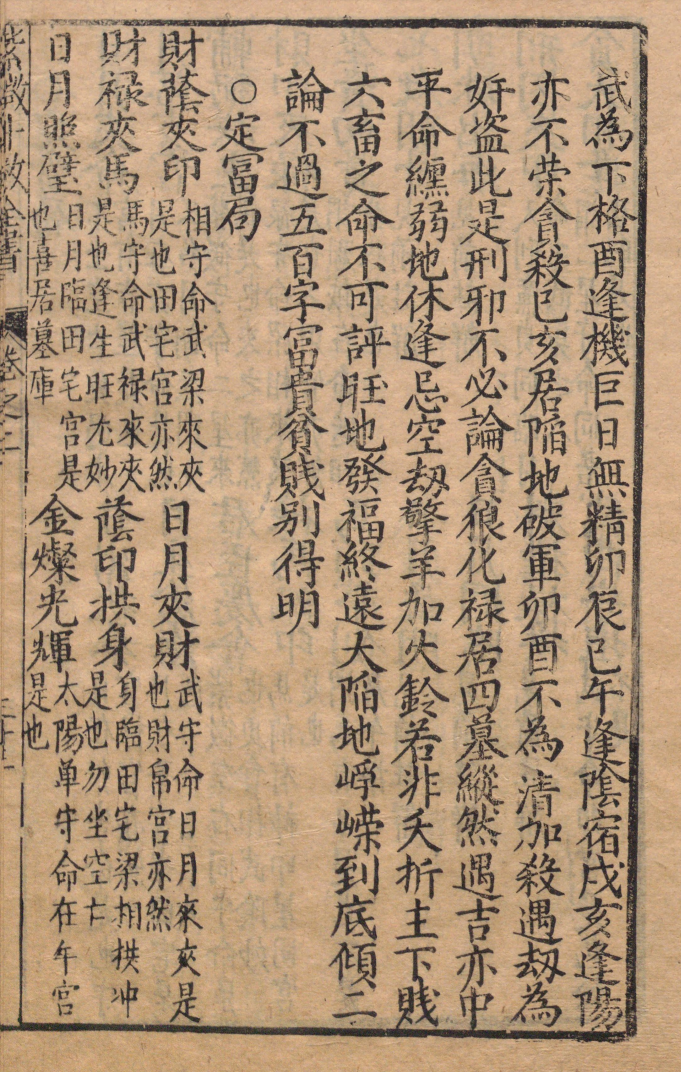 武為下格酉逢機巨日無精卯辰巳午逢陰宿戌亥逢陽
亦不荣貪殺巳亥居陷地破軍卯酉不為清加殺遇刼為
奸盗此是刑邪不必論貪狼化禄居四墓縱然遇吉亦中
平命纏弱地休逢忌空刼擎羊加火鈴若非夭折主下賤
六畜之命不可評旺地發福終遠大陷地崢嶸到底傾二
論不過五百字富貴貧賤别得明
○定富局
財蔭夾印 相守命武梁來夾是也田宅宫亦然 日月夾財 武守命日月來夾是也財帛宫亦然
財禄夾馬 馬守命武禄來夾是也逢生旺尤妙 蔭印拱身 身臨田宅梁相拱冲是也勿坐空亡
日月照璧 日月臨田宅宫是也喜居墓庫 金燦光輝 太陽单守命在午宫是也
紫微斗数全書 卷之二